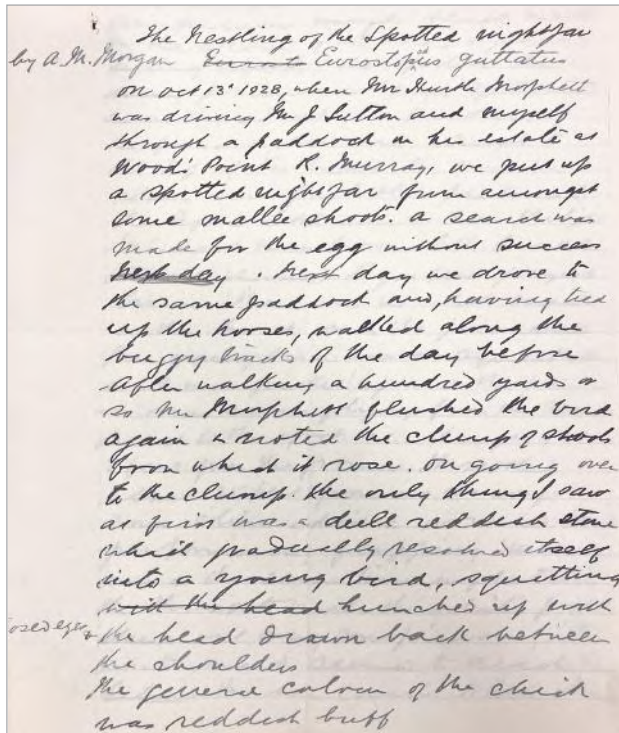 The Nestling of the Spotted nightjar
by A. M. Morgan Eurostopus guttatus
on Oct 13th 1928, when Mr Hurtle Morphett
was driving Mr J Sutton and myself
through a paddock on his estate at
Wood's Point R. Murray, we put up
a spotted nightjar from amongst
some mallee shoots. a search was
made for the egg without success
next day. Next day we drove to
the same paddock and, having tied
up the horses, walked along the
buggy tracks of the day before
After walking a hundred yards or
so Mr Morphett flushed the bird
again & noted the clump of shoots
from which it rose. on going over
to the clump the only thing I saw
at first was a dull reddish stone
which gradually resolved itself
into a young bird, squatting
with the head hunched up with
closed eyes & the head drawn back between
the shoulders
The general colour of the chick
was reddish buff